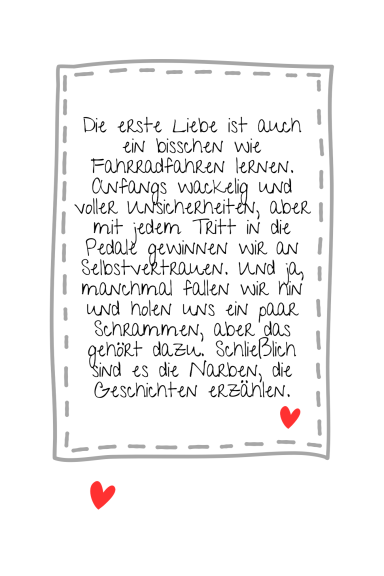 Die erste Liebe ist auch
ein bisschen wie
Fahrradfahren lernen.
Anfangs wackelig und
voller Unsicherheiten, aber
mit jedem Tritt in die
Pedale gewinnen wir an
Selbstvertrauen. Und ja,
manchmal fallen wir hin
und holen uns ein paar
Schrammen, aber das
gehört dazu. Schließlich
sind es die Narben, die
Geschichten erzählen.